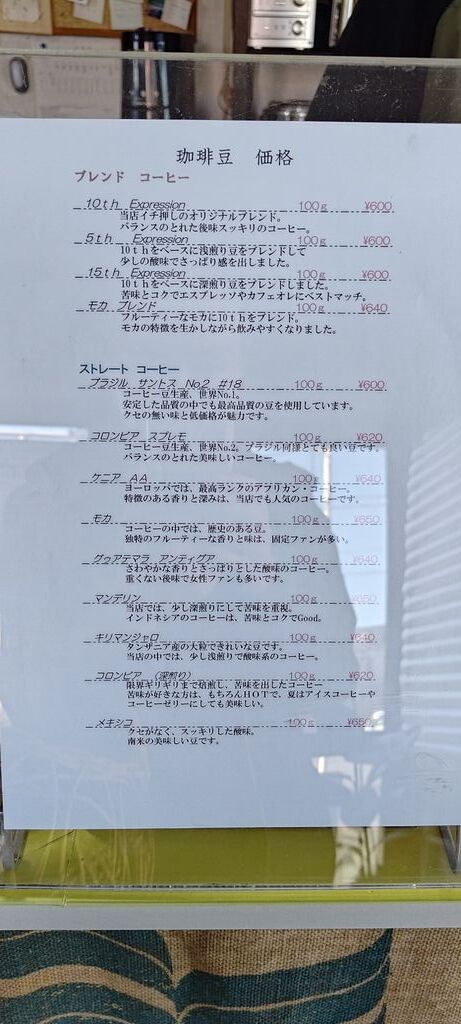 珈琲豆 価格
ブレンド コーヒー
10th Expression 100g ¥600
当店イチ押しのオリジナルブレンド。
バランスのとれた後味スッキリのコーヒー。
5th Expression 100g ¥600
10thをベースに浅煎り豆をブレンドして
少しの酸味でさっぱり感を出しました。
15th Expression 100g ¥600
10thをベースに深煎り豆をブレンドしました。
苦味とコクでエスプレッソやカフェオレにベストマッチ。
モカ ブレンド 100g ¥640
フルーティーなモカに10thをブレンド。
モカの特徴を生かしながら飲みやすくなりました。
ストレート コーヒー
ブラジル サントス No2 #18 100g ¥600
コーヒー豆生産、世界No.1。
安定した品質の中でも最高品質の豆を使用しています。
クセの無い味と低価格が魅力です。
コロンビア スプレモ 100g ¥620
コーヒー豆生産、世界No.2。ブラジル同様とても良い豆です。
バランスのとれた美味しいコーヒー。
ケニア AA 100g ¥640
ヨーロッパでは、最高ランクのアフリカン・コーヒー。
特徴のある香りと深みは、当店でも人気のコーヒーです。
モカ 100g ¥650
コーヒーの中では、歴史のある豆。
独特のフルーティーな香りと味は、固定ファンが多い。
グゥアテマラ アンティグア 100g ¥640
さわやかな香りとさっぱりとした酸味のコーヒー。
重くない後味で女性ファンも多いです。
マンデリン 100g ¥650
当店では、少し深煎りにして苦味を重視。
インドネシアのコーヒーは、苦味とコクでGood。
キリマンジャロ 100g ¥640
タンザニア産の大粒できれいな豆です。
当店の中では、少し浅煎りで酸味系のコーヒー。
コロンビア (深煎り) 100g ¥620
限界ギリギリまで焙煎し、苦味を出したコーヒー。
苦味が好きな方は、もちろんHOTで、夏はアイスコーヒーや
コーヒーゼリーにしても美味しい。
メキシコ 100g ¥650
クセがなく、スッキリした酸味。
南米の美味しい豆です。